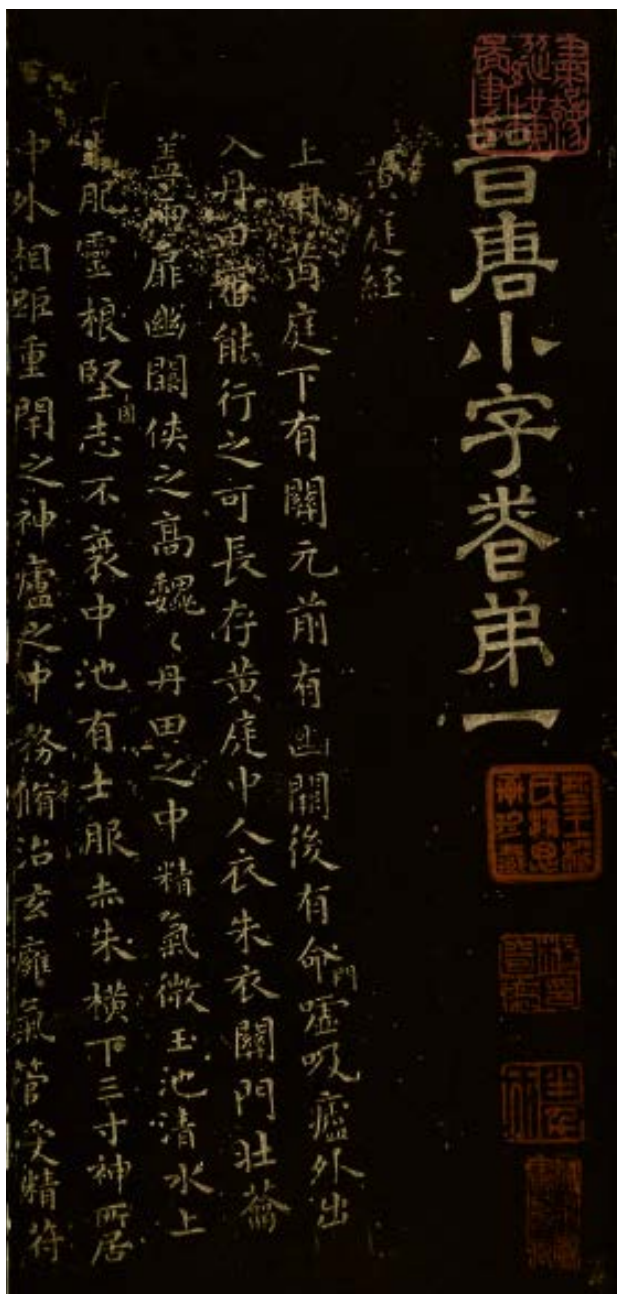 晉唐小字卷弟一
黃庭経
上有黃庭下有關元前有幽關後有命門噓吸廬外出
入丹田審能行之可長存黃庭中人衣朱衣關門壯籥
蓋兩扉幽關俠之高魏〻丹田之中精氣微玉池清水上
生肥靈根堅固志不衰中池有士服赤朱橫下三寸神所居
中外相距重閇之神廬之中務脩治玄癰氣管受精符